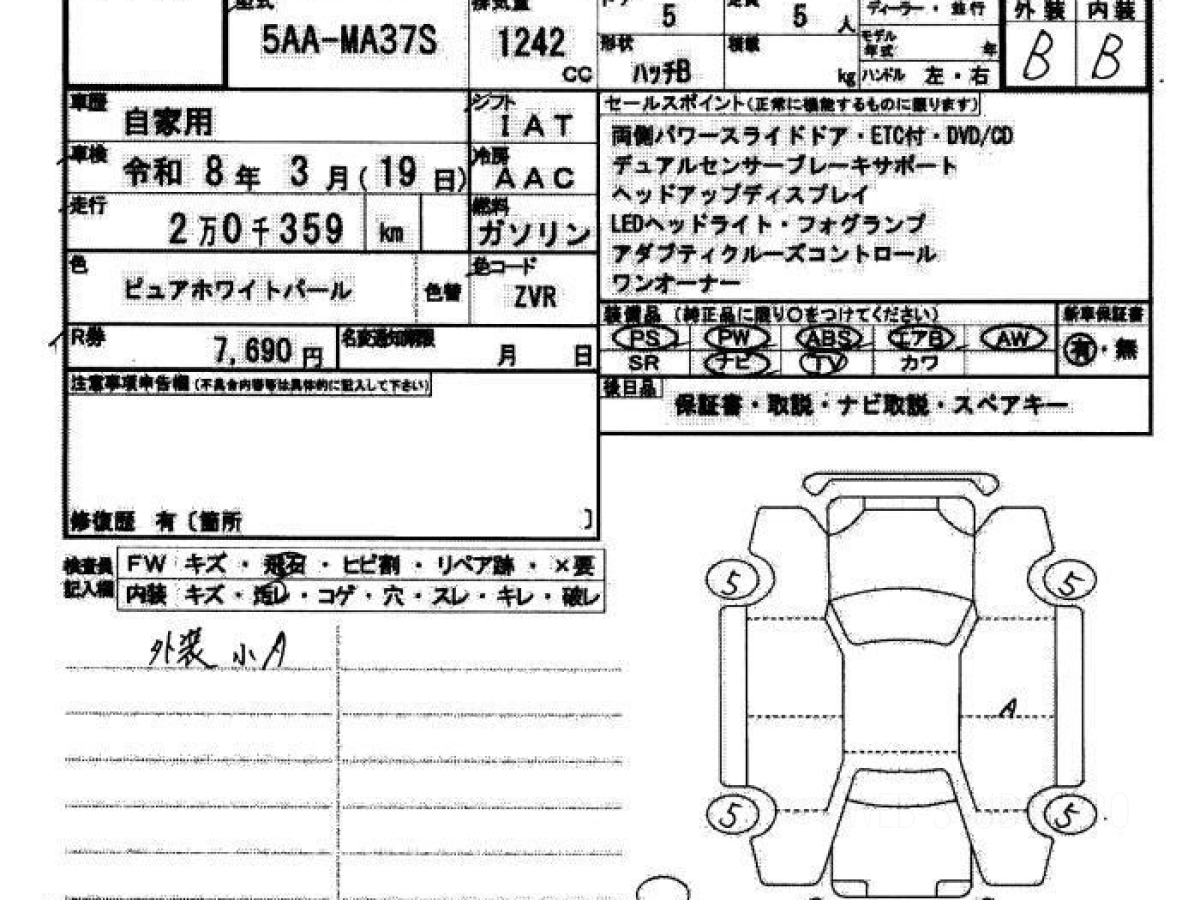 型式 排気量 ドア 5 定員 5 人 ディーラー・並行 外装 内装
5AA-MA37S 1242 CC 形状 ハッチB 積載 kg モデル年式 年 B B
ハンドル 左・右
車歴 自家用 シフト IAT
セールスポイント(正常に機能するものに限ります)
両側パワースライドドア・ETC付・DVD/CD
デュアルセンサーブレーキサポート
ヘッドアップディスプレイ
LEDヘッドライト・フォグランプ
アダプティクルーズコントロール
ワンオーナー
車検 令和 8年 3月(19日) 冷房 AAC
走行 2万0千359 km 燃料 ガソリン
色 ピュアホワイトパール 色替 色コード ZVR
R券 7,690円 名変通知期限 月 日
装備品 (純正品に限り○をつけてください) 新車保証書
PS PW ABS エアB AW 有・無
SR ナビ TV カワ
後日品 保証書・取説・ナビ取説・スペアキー
注意事項申告欄(不具合内容等は具体的に記入して下さい)
修復歴 有〔箇所 〕
検査員記入欄 FW キズ・飛石・ヒビ割・リペア跡・×要
内装 キズ・汚レ・コゲ・穴・スレ・キレ・破レ
外装 小A
5 5
A
5 5